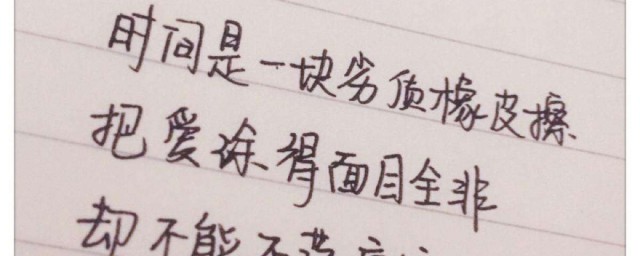 时间是一块劣质橡皮擦
把爱涂得面目全非
却不能不